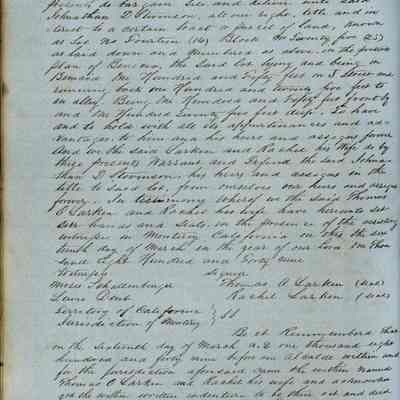 presents do bargain Sell and deliver unto said
Johnathan D Stevenson, all our right, title and in
terest to a certain tract or parcel of Land known
as Lot No Fourteen (14) Block No Twenty five (25)
as laid down and numbered as above in the
plan of Benicia, the Said lot lying and being in
Benicia One Hundred and Fifty feet on Street and
running back one Hundred and twenty five feet to
an alley. Being One Hundred and Fifty feet front by
and One Hundred Twenty five feet deep. To have
and to hold with all the appurtenances and ad-
vantages to him and his heirs and assigns forever
And we the said Larken and Rachel his Wife do by
these presents Warrant and Defend the said Johna-
than D Stevenson, his heirs and assigns in the
title to said lot, from ourselves our heirs and assigns
forever. In testimony whereof we the said Thomas
O Larken and Rachel his wife have hereunto set
our hands and Seals in the presence of the
witnesses in Monterey California on this the six
teenth day of March in the year of our Lord One Thou
sand Eight Hundred and Forty nine
Witnesses Signed
Moses Schallenberger Thomas O Larken (seal)
Lewis Dent Rachel Larken (seal)
Territory of California
Jurisdiction of Monterey } SS
Be it Remembered that
on the Sixteenth day of March A.D. one thousand eight
hundred and forty nine before me Alcalde within and
for the jurisdiction aforesaid came the within Named
Thomas O Larken and Rachel his wife and acknowled
ged the within written indenture to be their act and deed